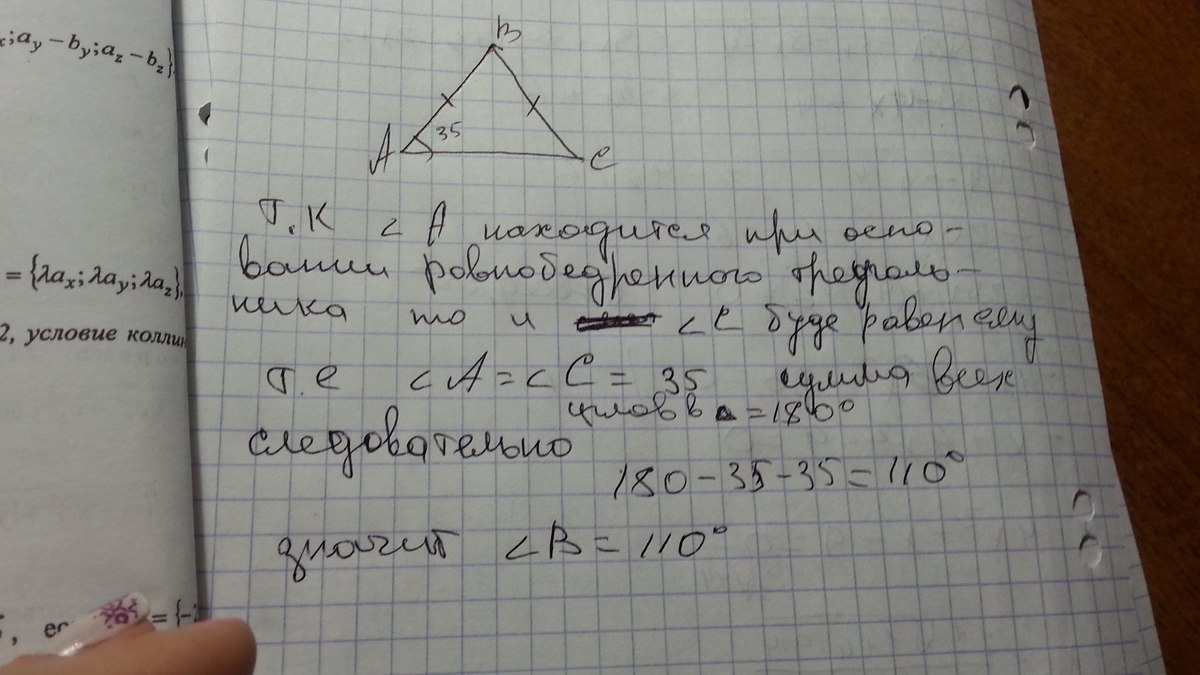 x; a_y − b_y; a_z − b_z}
= {λa_x; λa_y; λa_z},
2, условие коллин
, ес = {-2
B
35
A C
Т.К ∠A находится при осно-
вании равнобедренного треуголь-
ника то и ∠C буде равен ему
т.е ∠A=∠C= 35 сумма всех
углов в △ =180°
следовательно
180-35-35=110°
значит ∠B=110°